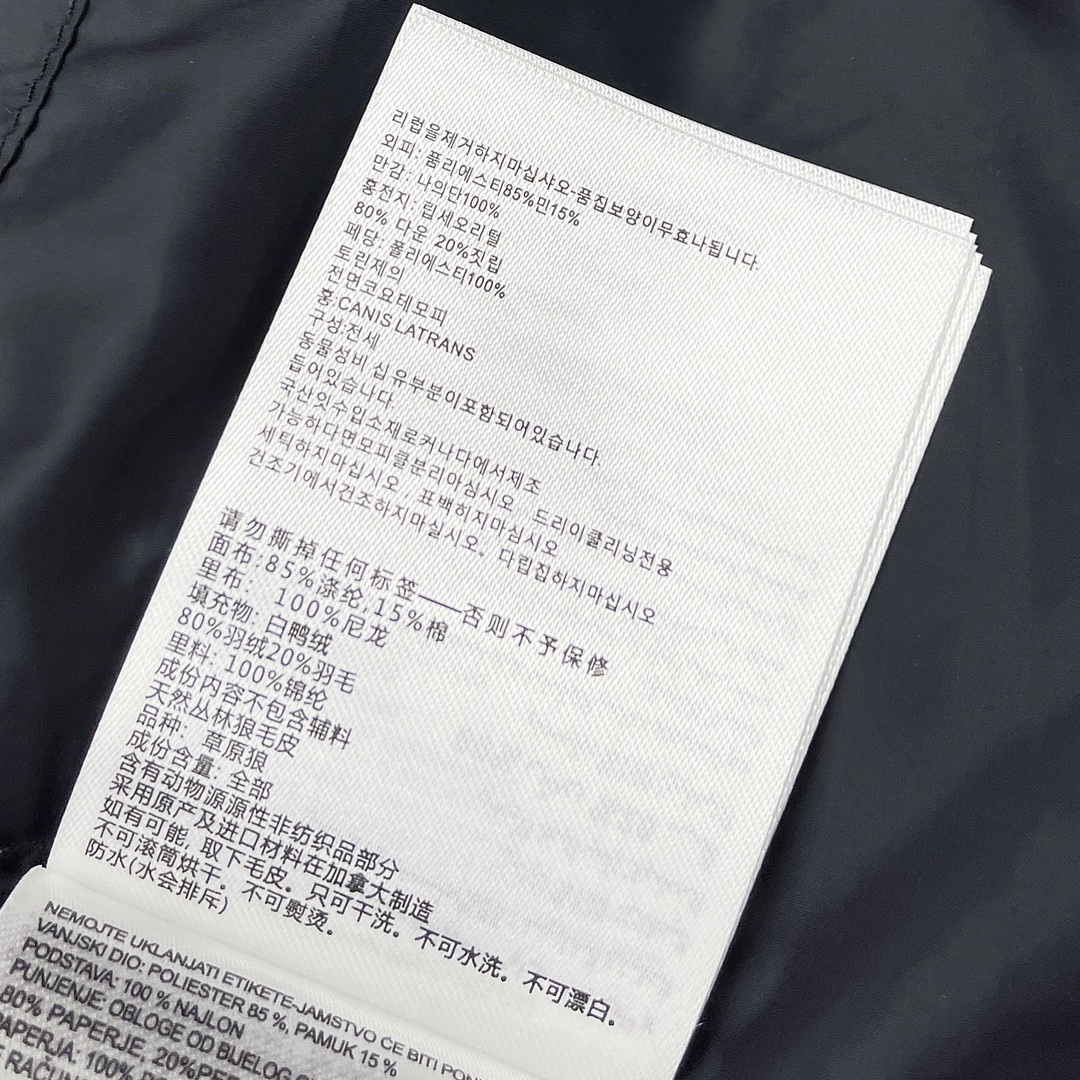 리럽을제거하지마십샤오-품집보양이무효나됩니다.
외피: 품리에스티85%민15%
만감: 나의단100%
홍전지: 립세오리털
80% 다운 20%짓립
페당: 폴리에스티100%
토린제의
전면코요테모피
홍:CANIS LATRANS
구성:전세
동물성비 십유부분이포함되어있습나다.
듭어있습니다.
국산잇수입소재로커나다에서제조
가능하다면모피클분리아심시오 드리이클리닝전용
세틱하지마십시오 표백히지마심시오
건조기에서건조하지마실시오. 다립집하지마십시오
请勿撕掉任何标签——否则不予保修
面布:85%涤纶,15%棉
里布: 100%尼龙
填充物: 白鸭绒
80%羽绒20%羽毛
里料: 100%锦纶
成份内容不包含辅料
天然丛林狼毛皮
品种: 草原狼
成份含量: 全部
含有动物源源性非纺织品部分
采用原产及进口材料在加拿大制造
如有可能, 取下毛皮。只可干洗。不可水洗。不可漂白。
不可滚筒烘干。不可熨烫。
防水(水会排斥)
NEMOJTE UKLANJATI ETIKETE-JAMSTVO CE BITI
VANJSKI DIO: POLIESTER 85 %, PAMUK 15 %
PODSTAVA: 100 % NAJLON
PUNJENJE: OBLOGE OD BIJELOG
80% PAPERJE, 20%
100%